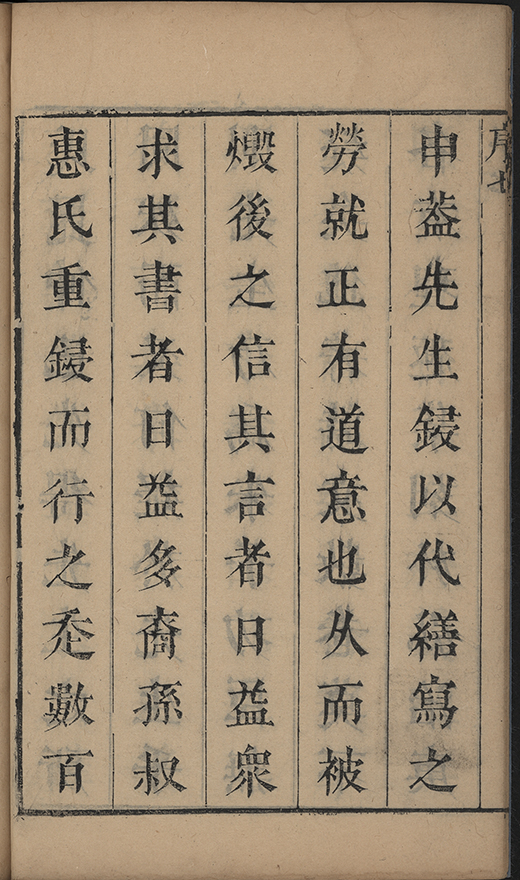 序 七
申葢先生鋟以代繕寫之
勞就正有道意也乆而被
燬後之信其言者日益衆
求其書者日益多裔孫叔
惠氏重鋟而行之兊數百